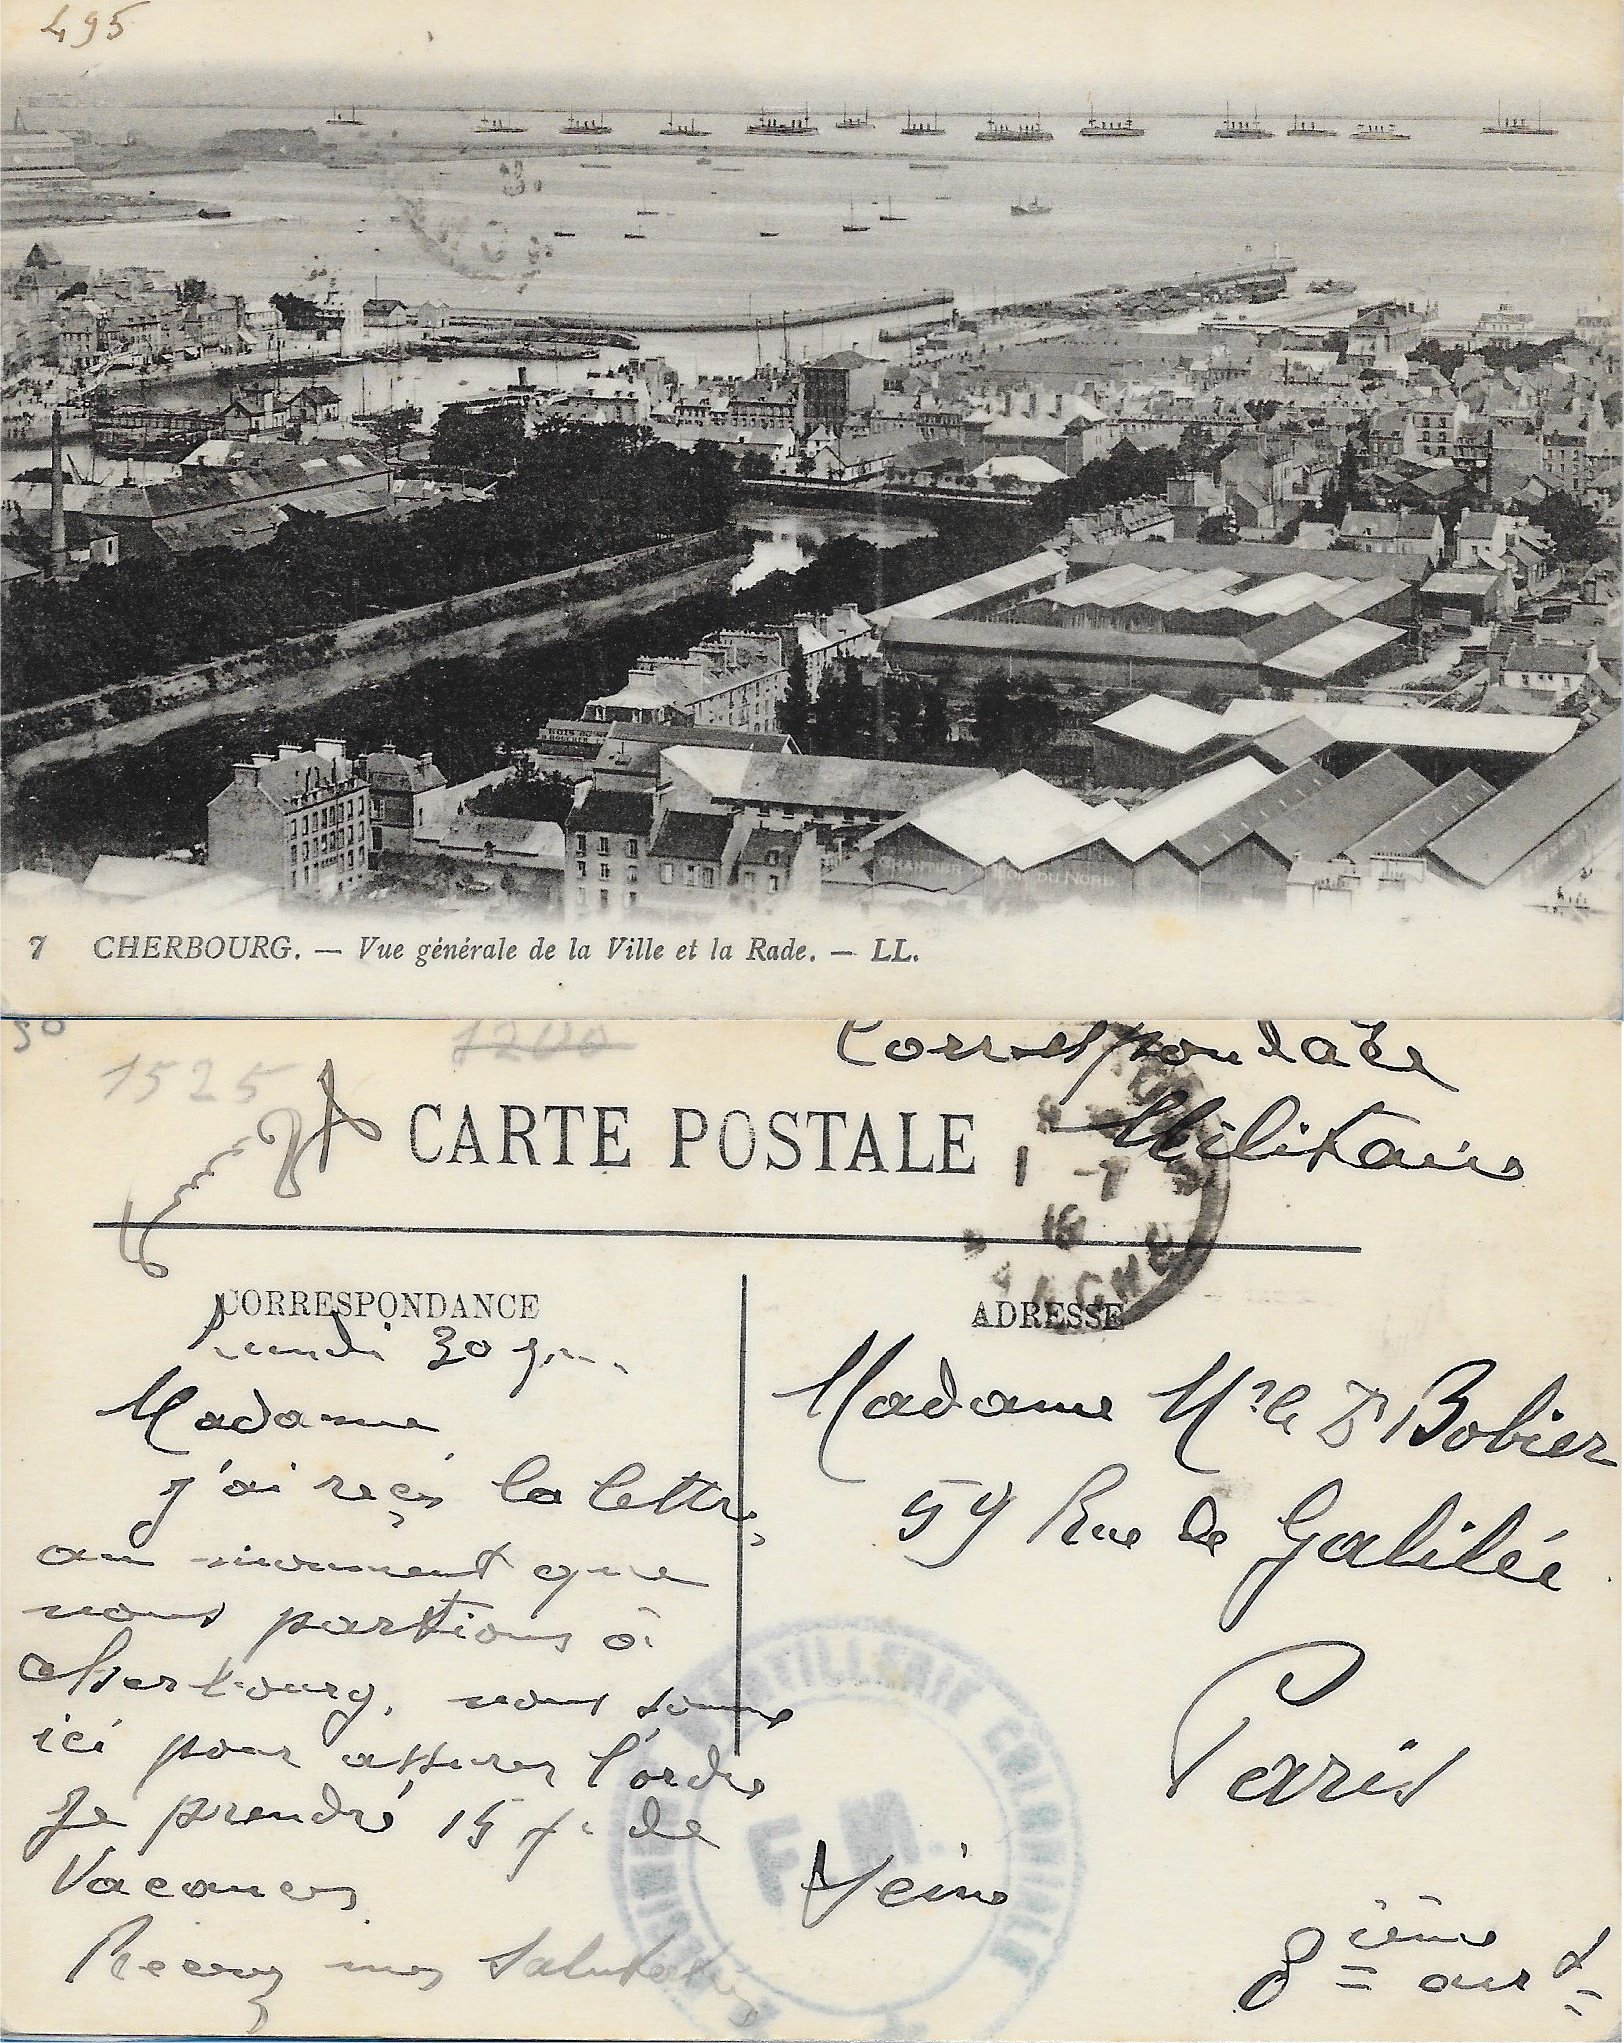 495
CHANTIER DU NORD
7 CHERBOURG. — Vue générale de la Ville et la Rade. — LL.
50
1525
1200
Correspondance
Militaire
CARTE POSTALE
1 -7
16
CORRESPONDANCE
ADRESSE
Lundi 30
Madame
j'ai reçu la lettre
au moment que
nous partions à
Cherbourg, nous somme
ici pour assurer l'ordre
Je prendré 15 j. de
Vacances
Recevez mes Salutations
Madame Bobier
59 Rue de Galilée
Paris
Seine
8ième arr
ARTILLERIE COLONIALE
F. M.